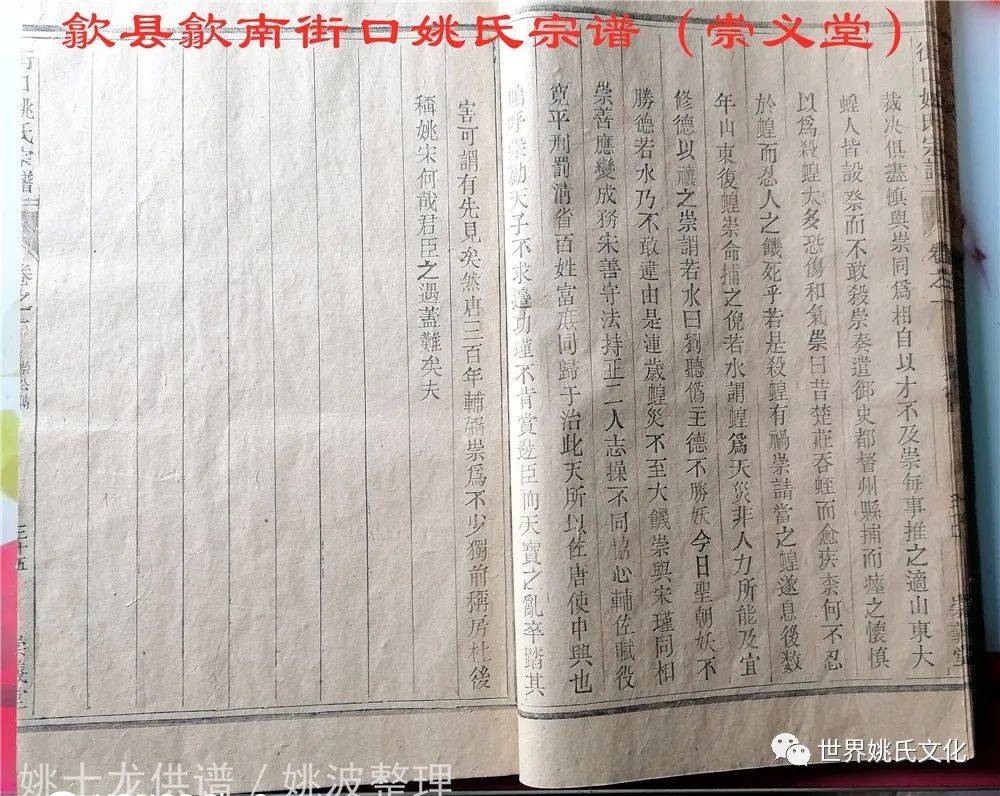 歙县歙南街口姚氏宗谱（崇义堂）
街口姚氏宗譜
卷之一
崇義堂
裁决俱盡慎與崇同為相自以才不及崇每事推之適山東大
蝗人皆設祭而不敢殺崇奏遣御史都督州縣捕而瘞之懷慎
以為殺蝗太多恐傷和氣崇曰昔楚莊吞蛭而愈疾柰何不忍
於蝗而忍人之饑死乎若是殺蝗有禍崇請當之蝗遂息後数
年山東復蝗崇命捕之倪若水謂蝗為天災非人力所能及宜
修德以禳之崇謂若水曰劉聽偽主德不勝妖今日聖朝妖不
勝德若水乃不敢違由是連歲蝗災不至大饑崇與宋璟同相
崇善應變成務宋善守法持正二人志操不同協心輔佐賦役
寬平刑罰清省百姓富庶同歸于治此天所以佐唐使中興也
嗚呼崇勸天子不求邊功瑾不肯賞邊臣而天寶之亂卒踏其
害可謂有先見矣然唐三百年輔弼崇為不少獨前稱房杜後
稱姚宋何哉君臣之遇蓋難矣夫
街口姚氏宗譜
卷之一
三十五
崇義堂
世界姚氏文化
姚士龙供谱 / 姚波整理